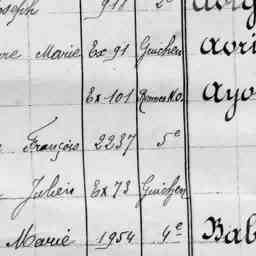 oseph 911 2e
re Marie Ex 91 Guichen avri
Ex 101 Rennes N.O. ayo
François 2237 5e
Julien Ex 73 Guichen
Marie 1954 4e Bab